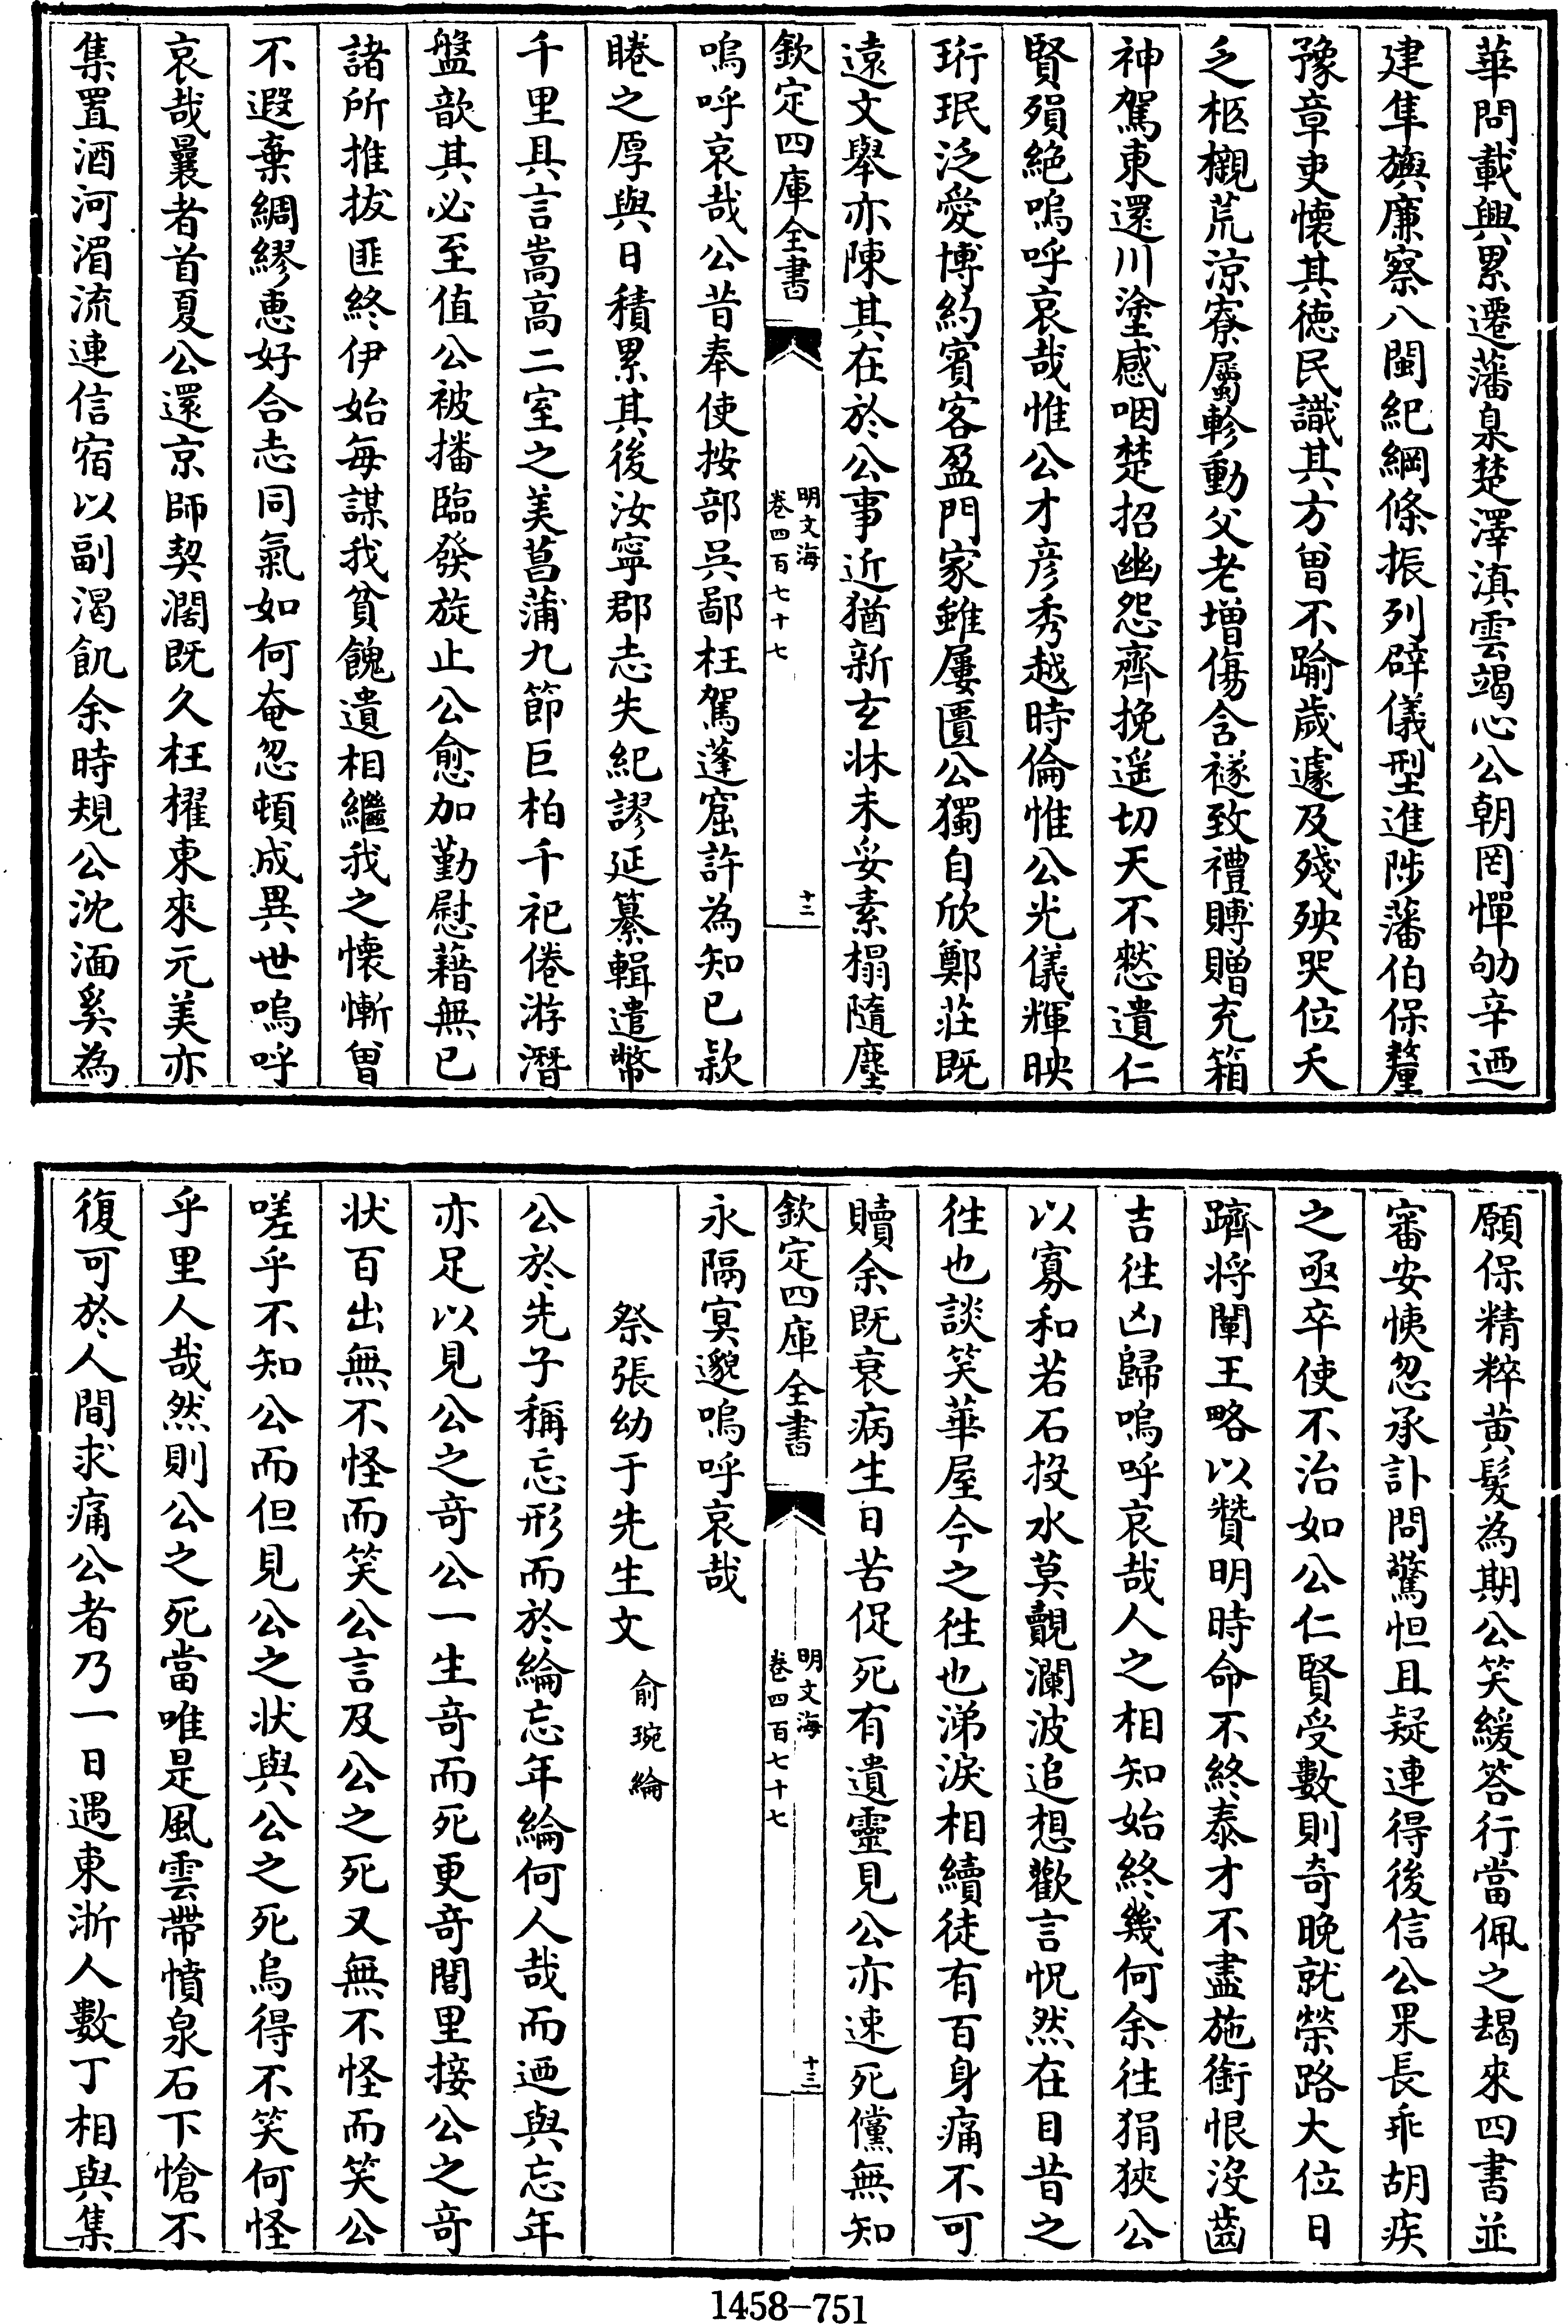 華問載興累遷藩臬楚澤滇雲竭心公朝罔憚劬辛迺
建隼旟廉察八閩紀綱條振列辟儀型進陟藩伯保釐
豫章吏懷其徳民識其方曽不踰歲遽及殘殃哭位夭
乏柩櫬荒涼寮屬軫動父老增傷含襚致禮賻贈充箱
神駕東還川塗感咽楚招幽怨齊挽遥切天不憗遺仁
賢殞絶嗚呼哀哉惟公才彦秀越時倫惟公光儀輝映
珩珉泛愛博約賓客盈門家雖屢匱公獨自欣鄭莊既
遠文舉亦陳其在於公事近猶新玄牀未妥素榻隨塵
欽定四庫全書
明文海
卷四百七十七
十二
嗚呼哀哉公昔奉使按部呉鄙枉駕蓬窟許為知已款
睠之厚與日積累其後汝寧郡志失紀謬延纂輯遣幣
千里具言嵩高二室之美菖蒲九節巨柏千祀倦游潛
盤歆其必至值公被播臨發旋止公愈加勤慰藉無已
諸所推拔匪終伊始每謀我貧餽遺相繼我之懷慚曽
不遐棄綢繆惠好合志同氣如何奄忽頓成異世嗚呼
哀哉曩者首夏公還京師契濶既久枉櫂東來元美亦
集置酒河湄流連信宿以副渴飢余時規公沈湎奚為
願保精粹黄髪為期公笑緩答行當佩之朅來四書並
審安恱忽承訃問驚怛且疑連得後信公果長乖胡疾
之亟卒使不治如公仁賢受數則奇晩就榮路大位日
躋将闡王略以贊明時命不終泰才不盡施銜恨沒齒
吉往凶歸嗚呼哀哉人之相知始終幾何余往狷狹公
以寡和若石投水莫覿瀾波追想歡言怳然在目昔之
往也談笑華屋今之往也涕淚相續徒有百身痛不可
贖余既衰病生日苦促死有遺靈見公亦速死儻無知
欽定四庫全書
明文海
卷四百七十七
十三
永隔㝠邈嗚呼哀哉
祭張幼于先生文 俞琬綸
公於先子稱忘形而於綸忘年綸何人哉而迺與忘年
亦足以見公之竒公一生竒而死更竒閭里接公之竒
状百出無不怪而笑公言及公之死又無不怪而笑公
嗟乎不知公而但見公之状與公之死烏得不笑何怪
乎里人哉然則公之死當唯是風雲帶憤泉石下愴不
復可於人間求痛公者乃一日遇東浙人數丁相與集
1458-751